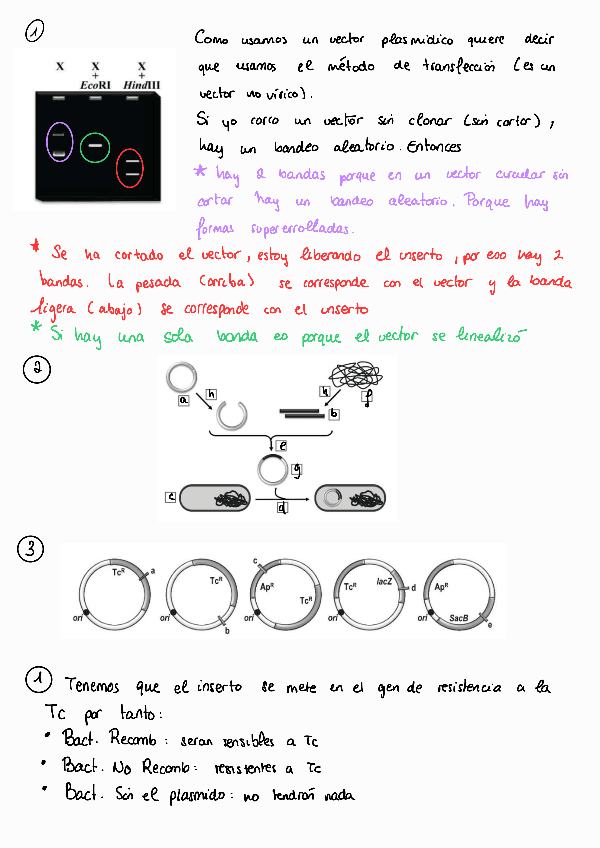 1
Como usamos un vector plasmídico quiere decir
que usamos el método de transfección (es un
vector no vírico).
Si yo corro un vector sin clonar (sin cortar),
hay un bandeo aleatorio. Entonces
* hay 2 bandas porque en un vector circular sin
cortar hay un bandeo aleatorio. Porque hay
formas superenrolladas.
X X X
+ +
EcoRI HindIII
* Se ha cortado el vector, estoy liberando el inserto, por eso hay 2
bandas. La pesada (arriba) se corresponde con el vector y la banda
ligera (abajo) se corresponde con el inserto
* Si hay una sola banda es porque el vector se linealizó
2
a h h f
b
e
g
c d
3
TcR a ori
TcR b ori
c ApR TcR ori
TcR lacZ d ori
ApR SacB e ori
1 Tenemos que el inserto se mete en el gen de resistencia a la
Tc por tanto:
• Bact. Recomb: seran sensibles a Tc
• Bact. No Recomb: resistentes a Tc
• Bact. Sin el plasmido: no tendrán nada